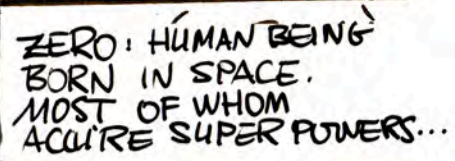 ZERO: HUMAN BEING
BORN IN SPACE.
MOST OF WHOM
ACQUIRE SUPER POWERS...